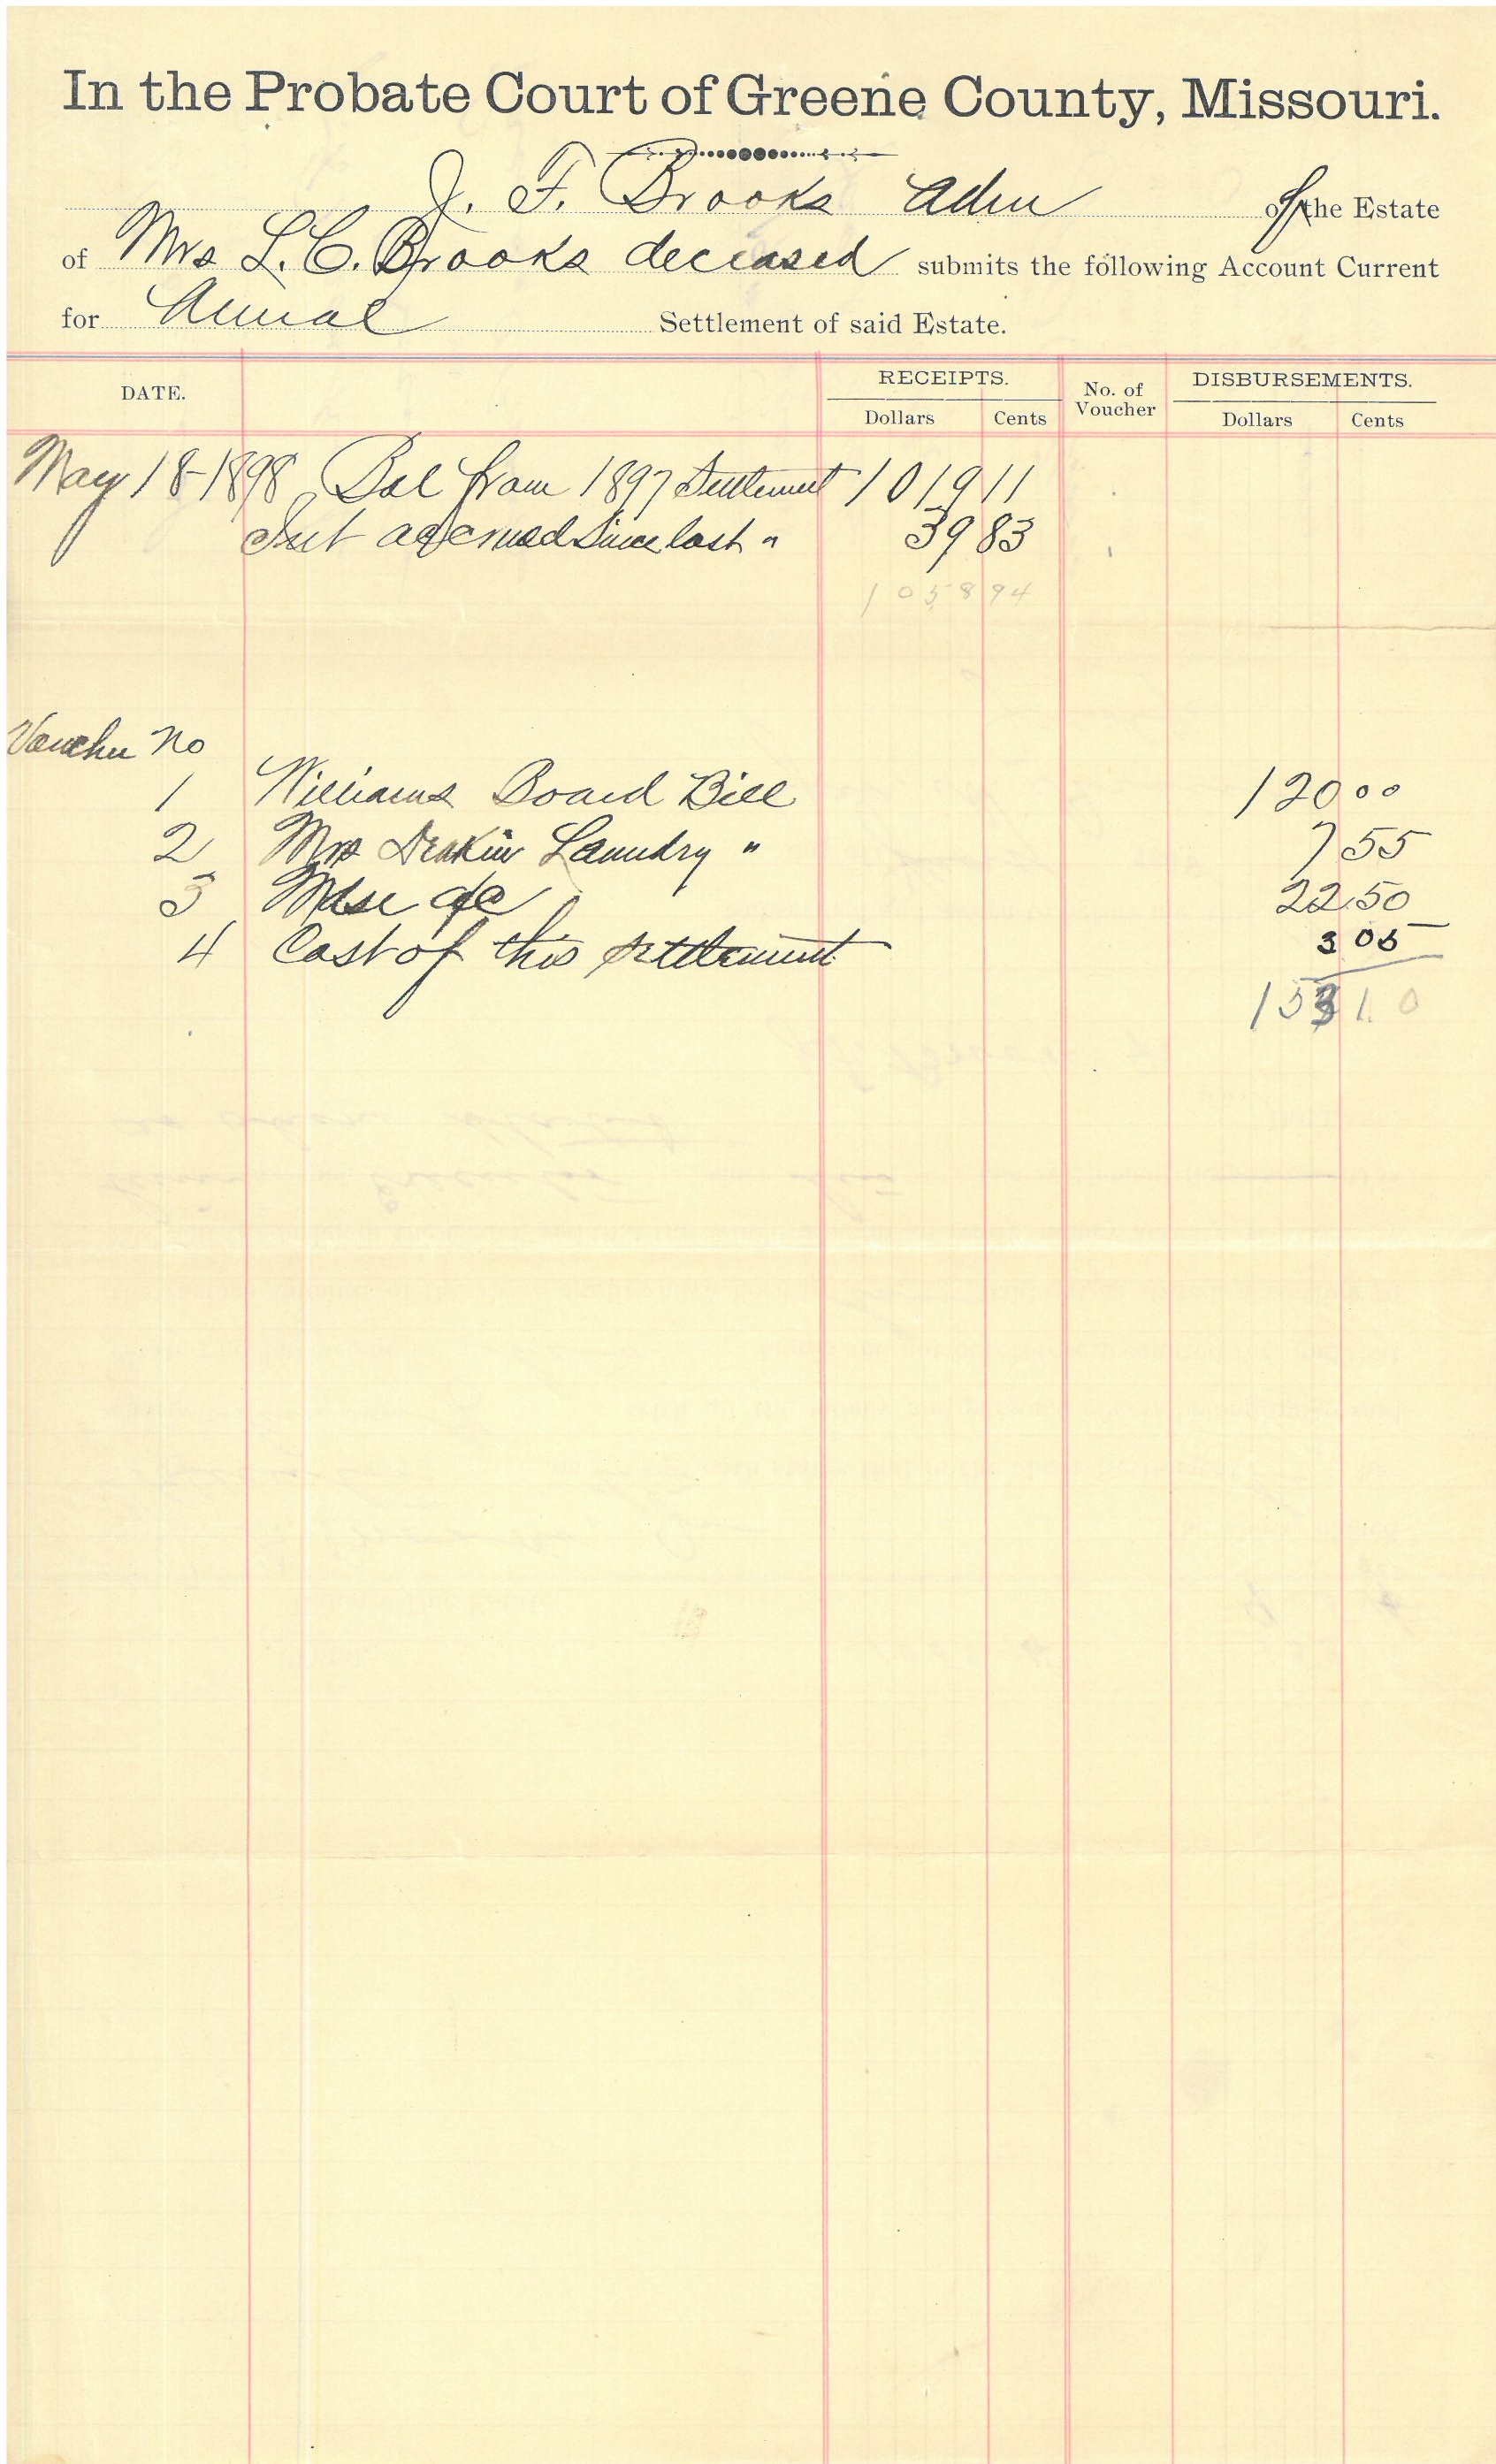 In the Probate Court of Greene County, Missouri.
J. F. Brooks Adm of the Estate
of Mrs L. C. Brooks deceased submits the following Account Current
for Annual Settlement of said Estate.
DATE. RECEIPTS. No. of Voucher DISBURSEMENTS.
Dollars Cents Dollars Cents
May 18-1898 Bal from 1897 Settlement 1019 11
Int accrued Since last " 39 83
1058 94
Voucher No
1 Williams Board Bill 120 00
2 Mrs Deakin Laundry " 7 55
3 Mdse a/c 22.50
4 Cost of this settlement 3 05
153 1 0